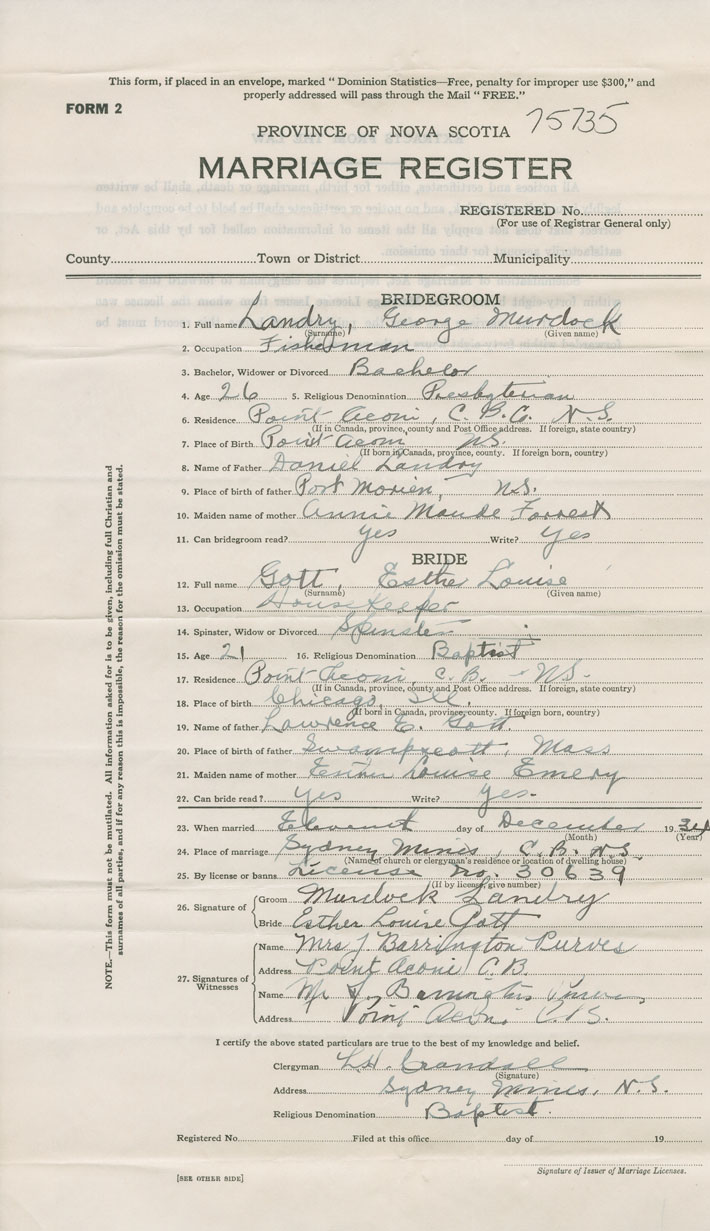 This form, if placed in an envelope, marked " Dominion Statistics—Free, penalty for improper use $300," and
properly addressed will pass through the Mail " FREE."
FORM 2
75735
PROVINCE OF NOVA SCOTIA
MARRIAGE REGISTER
REGISTERED No.
(For use of Registrar General only)
County Town or District Municipality
BRIDEGROOM
1. Full name Landry, George Murdock
(Surname) (Given name)
2. Occupation Fisherman
3. Bachelor, Widower or Divorced Bachelor
4. Age 26 5. Religious Denomination Presbyterian
6. Residence Point Aconi, C.B.Co. N.S.
(If in Canada, province, county and Post Office address. If foreign, state country)
7. Place of Birth Point Aconi, N.S.
(If born in Canada, province, county. If foreign born, county)
8. Name of Father Daniel Landry
9. Place of birth of father Port Morien, N.S.
10. Maiden name of mother Annie Maude Forrest
11. Can bridegroom read? Yes Write? Yes
BRIDE
12. Full name Gott, Esther Louise
(Surname) (Given name)
13. Occupation Housekeeper
14. Spinster, Widow or Divorced Spinster
15. Age 21 16. Religious Denomination Baptist
17. Residence Point Aconi, C.B. - N.S.
(If in Canada, province, county and Post Office address. If foreign, state country)
18. Place of birth Chicago, Ill.
(If born in Canada, province, county. If foreign born, country)
19. Name of father Lawrence E. Gott
20. Place of birth of father Swampscott, Mass
21. Maiden name of mother Esther Louise Emery
22. Can bride read? Yes Write? Yes.
23. When married Elevent day of December 1934
(Month) (Year)
24. Place of marriage Sydney Mines, C.B. N.S.
(Name of church or clergyman's residence or location of dwelling house)
25. By license or banns License No. 30639
(If by license, give number)
26. Signature of
Groom Murdock Landry
Bride Esther Louise Gott
27. Signatures of Witnesses
Name Mrs J Barrington Purves
Address Point Aconi C.B.
Name Mr J. Barrington Purves
Address Point Aconi C.B.
I certify the above stated particulars are true to the best of my knowledge and belief.
Clergyman L.H. Crandall
(Signature)
Address Sydney Mines, N.S.
Religious Denomination Baptist.
Registered No. Filed at this office day of 19
Signature of Issuer of Marriage Licenses.
[SEE OTHER SIDE]
NOTE.—This form must not be mutilated. All information asked for is to be given, including full Christian and
surnames of all parties, and if for any reason this is impossible, the reason for the omission must be stated.